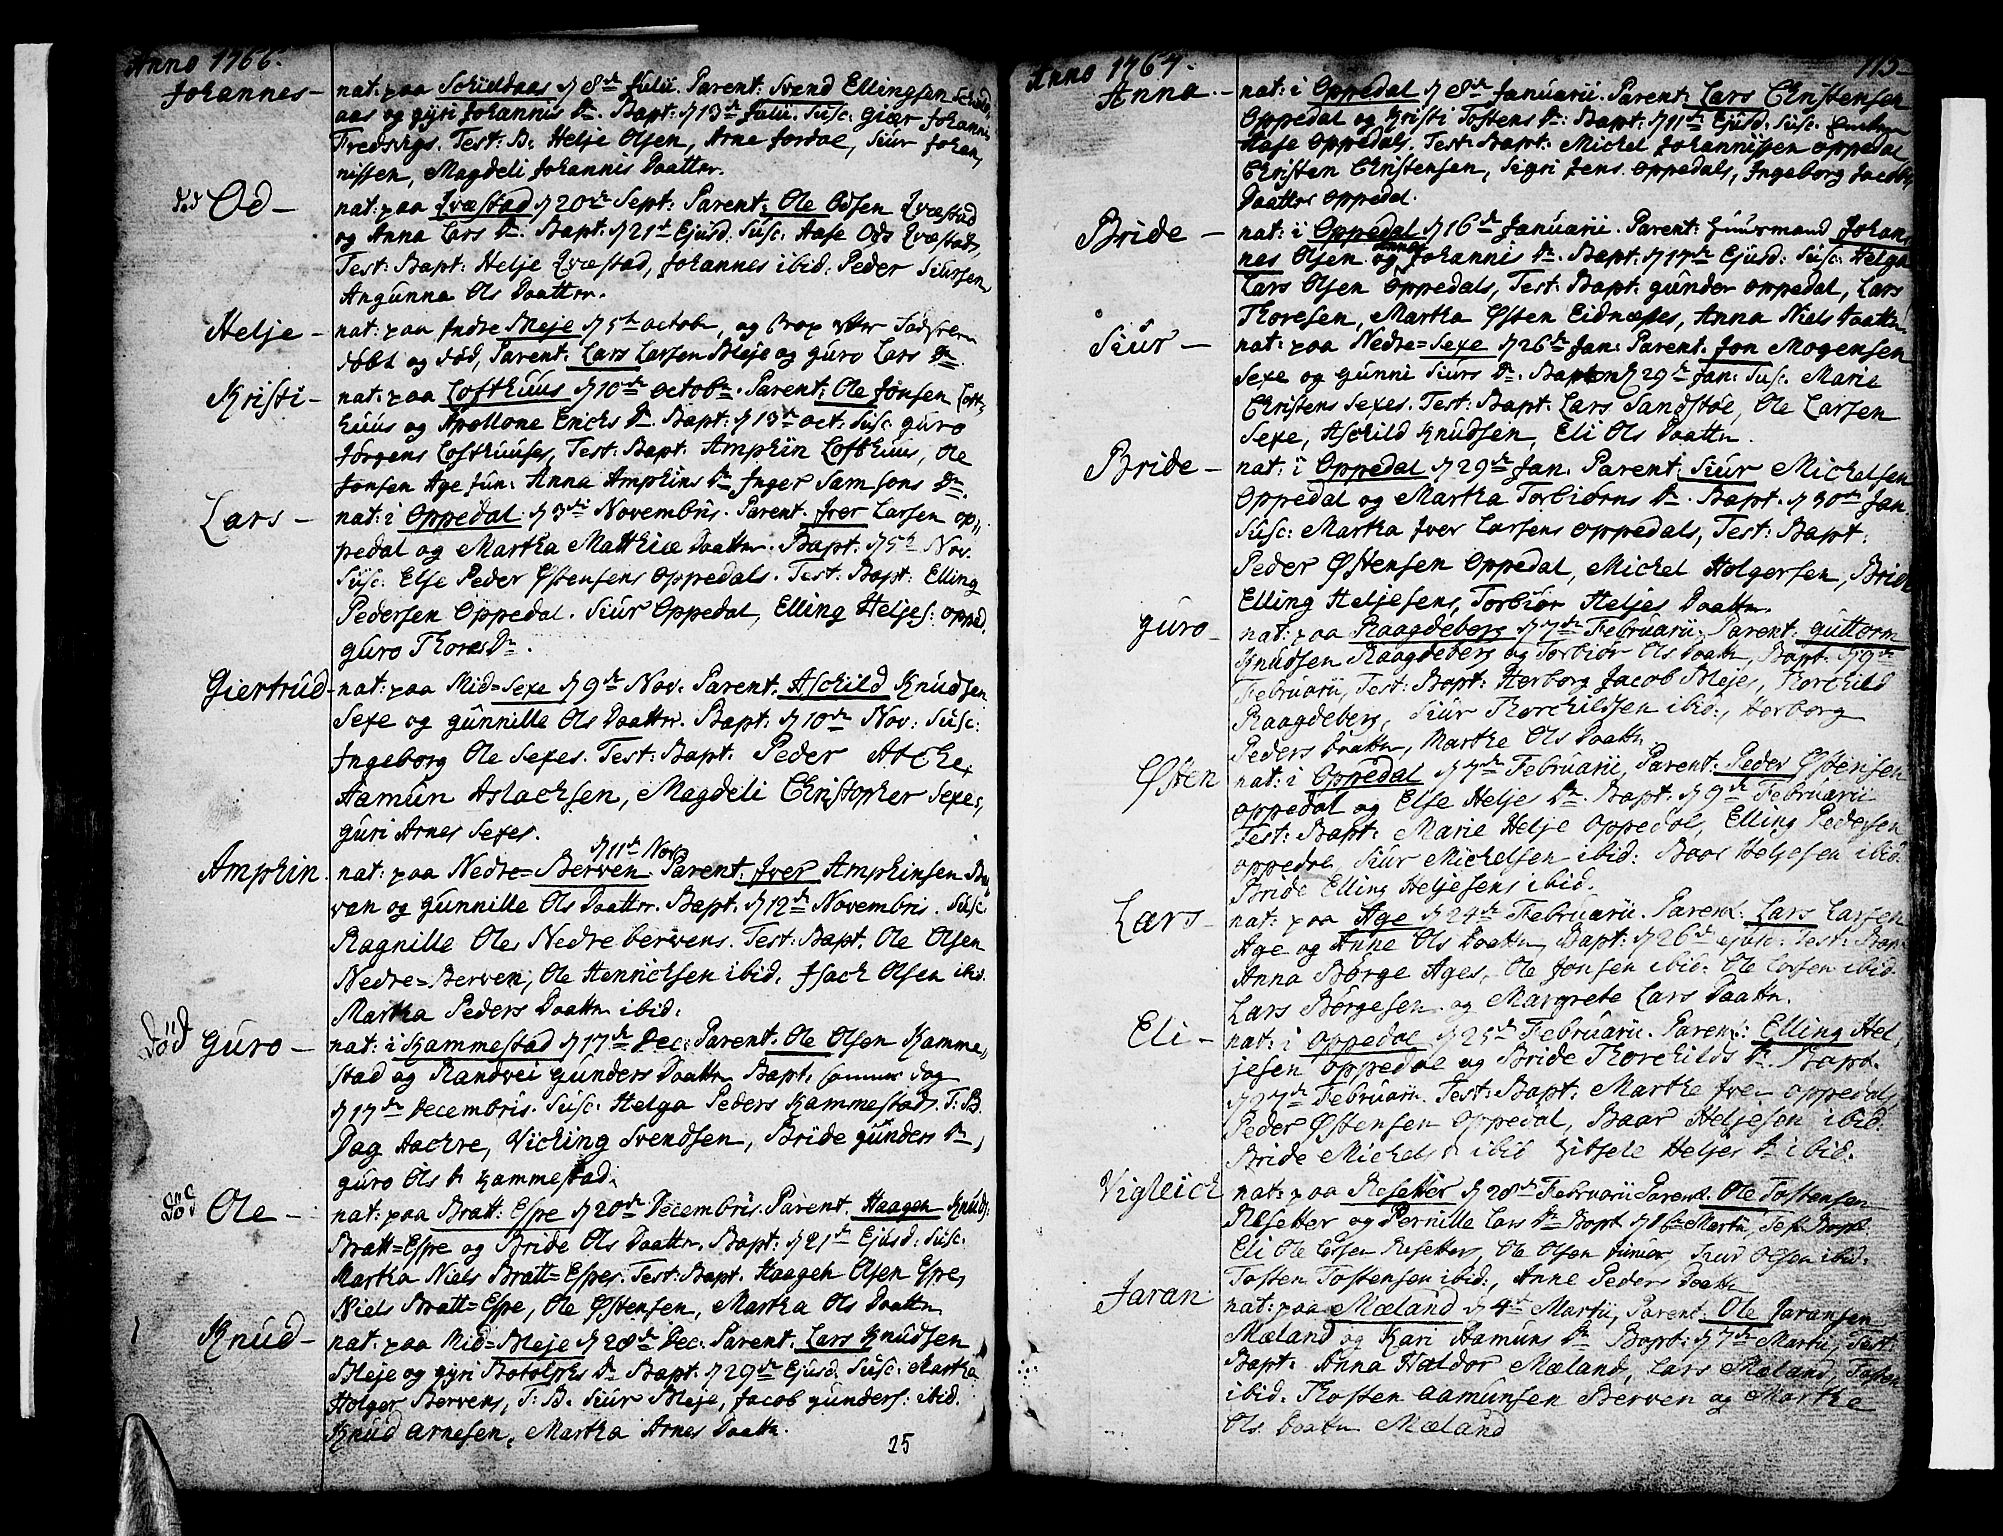 Anno 1766.
Johannes - nat: paa Schieldaas d 8de Julii. Parent: Svend Ellingsen Schield,,
aas og gyri Johannis Dr. Bapt: d 13de Julii. Susc: Giær Johannis
Tredschys. Test: B: Helje Olsen, Arne Jordal, Siur Johan,
nissen, Magdeli Johannis Daatter.
død Od - nat: paa Qvæstad d 20de Sept: Parent: Ole Odsen Qvæstad
og Anna Lars Dr. Bapt: d 21st Ejusd: Susc: Aase Ods Qvæstad,
Test: Bapt: Helje Qvæstad, Johannes ibid: Peder Siursen,
Angunna Ols Daatter.
Helje - nat: paa Indre Bleje d 5te octobr, og
døbt og død, Parent: Lars Larsen Bleje og guro Lars Dr.
Kristi - nat: paa Lofthuus d 10de octobr. Parent: Ole Jonsen Loft,,
huus og Apollone Erichs Dr. Bapt: d 13de oct: Susc: guro
Jørgens Lofthuuses, Test: Bapt: Amphin Lofthuus, Ole
Jonsen Age Jun: Anna Amphins Dr Inger Samsons Dr.
Lars - nat: i Oppedal d 3die Novembris. Parent: Iver Larsen op,,
pedal og Martha Matthiæ Daatter. Bapt: d 5te Nov.
Susc: Else Peder Østensens Oppedals. Test: Bapt: Elling
Pedersen Oppedal. Siur Oppedal, Elling Heljes: opped.
guro Thores Dr.
Giertrud - nat: paa Mid=Sexe d 9de Nov: Parent: Aschild Knudsen
Sexe og gunnille Ols Daatter. Bapt: d 10de Nov: Susc:
Ingeborg Ole Sexes. Test: Bapt: Peder
Aamun Aslachsen, Magdeli Christopher Sexes,
guri Arnes Sexes.
d 11te Nov
Amphin. nat: paa Nedre=Berven Parent: Iver Amphinsen Ber,
ven og gunnille Ols Daatter. Bapt: d 12te Novembris. Susc:
Ragnille Oles Nedre bervens. Test: Bapt: Ole Olsen
Nedre=Berven, Ole Henrichsen ibid: Isach Olsen ibid.
Martha Peders Daattr ibid:
død Guro - nat: i Kammestad d 17de Dec: Parent: Ole Olsen Kamme,,
stad og Randvei gunders Daattr Bapt: samme dag
d 17de Decembris. Susc: Helga Peders Kammestads. T: B.
Dag Aachre, Viching Svendsen, Bride gunders Dr,
guro Ols Dr Kammestad.
død Ole - nat: paa Bratt: Espe d 20de Decembris. Parent: Haagen Knuds:
Bratt=Espe og Bride Ols Daattr. Bapt: d 21de Ejusd: Susc:
Martha Niels Bratt=Espes. Test: Bapt: Haagen Olsen Espe,
Niels Bratt=Espe, Ole Østensen, Martha Ols Daattr
Knud - nat: paa Mid=Bleje d 28de Dec: Parent: Lars Knudsen
Bleje og gyri Botolphs Dr Bapt: d 29de Ejusd: Susc: Martha
Holger Bervens, T: B. Siur Bleje, Jacob gunders: ibid.
Knud Arnesen, Martha Arnes Daattr.
25
Anno 1767. 115
Anna - nat: i Oppedal d 8de Januarii. Parent: Lars Christensen
Oppedal og Kristi Tostens Dr: Bapt: d 11te Ejusd: Susc:
Aase Oppedals. Test: Bapt: Michel Johannissen Oppedal,
Christen Christensen, Sigri Jens Oppedals, Ingeborg Jacobs
Daatter Oppedal.
Bride - nat: i Oppedal d 16de Januarii. Parent: Huusmand Johan,,
nes Olsen og Anna Johannis Dr. Bapt: d 17de Ejusd: Susc: Helga
Lars Olsen Oppedals, Test: Bapt: gunder Oppedal, Lars
Thoresen, Martha Østen Eidnæses, Anna Niels Daattr
Siur - nat: paa Nedre=Sexe d 26de Jan: Parent: Jon Mogensen
Sexe og Gunni Siurs Dr. Bapt: d 29de Jan: Susc: Marie
Christens Sexes. Test: Bapt: Lars Sandstøe, Ole Larsen
Sexe, Aschild Knudsen, Eli Ols Daattr.
Bride - nat: i Oppedal d 29de Jan: Parent: Siur Michelsen
Oppedal og Martha Torbiørns Dr. Bapt: d 30de Jan.
Susc: Martha Iver Larsens Oppedals, Test: Bapt:
Peder Østensen Oppedal, Michel Holgersen, Bride
Elling Heljesens, Torbiør Heljes Daattr.
guro - nat: paa Raagdeberg d 7de Februarii, Parent: guttorm
Knudsen Raagdeberg og Torbiør Ols Daattr, Bapt: d 9de
Februarii, Test: Bapt: Herborg Jacob Blejes, Thorchild
Raagdeberg, Siur Thorchildsen ibid:, Herborg
Peders Daattr, Marthe Ols Daattr.
Østen nat: i Oppedal d 7de Februarii, Parent: Peder Østensen
oppedal og Else Heljes Dr. Bapt: d 9de Februarii
Test: Bapt: Marie Helje Oppedal, Elling Pedersen
oppedal, Siur Michelsen ibid: Baar Heljesen ibid:
Bride Elling Heljesens ibid.
Lars - nat: paa Age d 24de Februarii. Parent: Lars Larsen
Age og Anne Ols Daattr, Bapt: d 26de ejusd: Test: Bapt
Anna Børge Ages, Ole Jonsen ibid: Ole Larsen ibid
Lars Børgesen og Margrete Lars Daattr.
Eli - nat: i Oppedal d 25de Februarii. Parent: Elling Hel,
jesen Oppedal og Bride Thorchilds Dr. Bapt.
d 27de Februarii. Test: Bapt: Marthe Iver oppedals,
Peder Østensen Oppedal, Baar Heljesen ibid:
Bride Michels Dr ibid Zitsele Heljes Dr ibid.
Vigleich nat: paa Resetter d 28de Februarii Parent: Ole Tostensen
Resetter og Pernille Lars Dr Bapt d 1ste Martii, Test Bapt
Eli Ole Larsen Resetters, Ole Olsen Junior, Siur Olsen ibid.
Tosten Tostensen ibid:, Anne Peders Daattr
Jaran nat: paa Mæland d 4de Martii, Parent: Ole Jaransen
Mæland og Kari Aamuns Dr Bapt: d 7de Martii, Test:
Bapt: Anna Haldor Mæland, Lars Mæland, Tosten
ibid. Thosten Aamunsen Berven og Martha
Ols Daattr Mæland